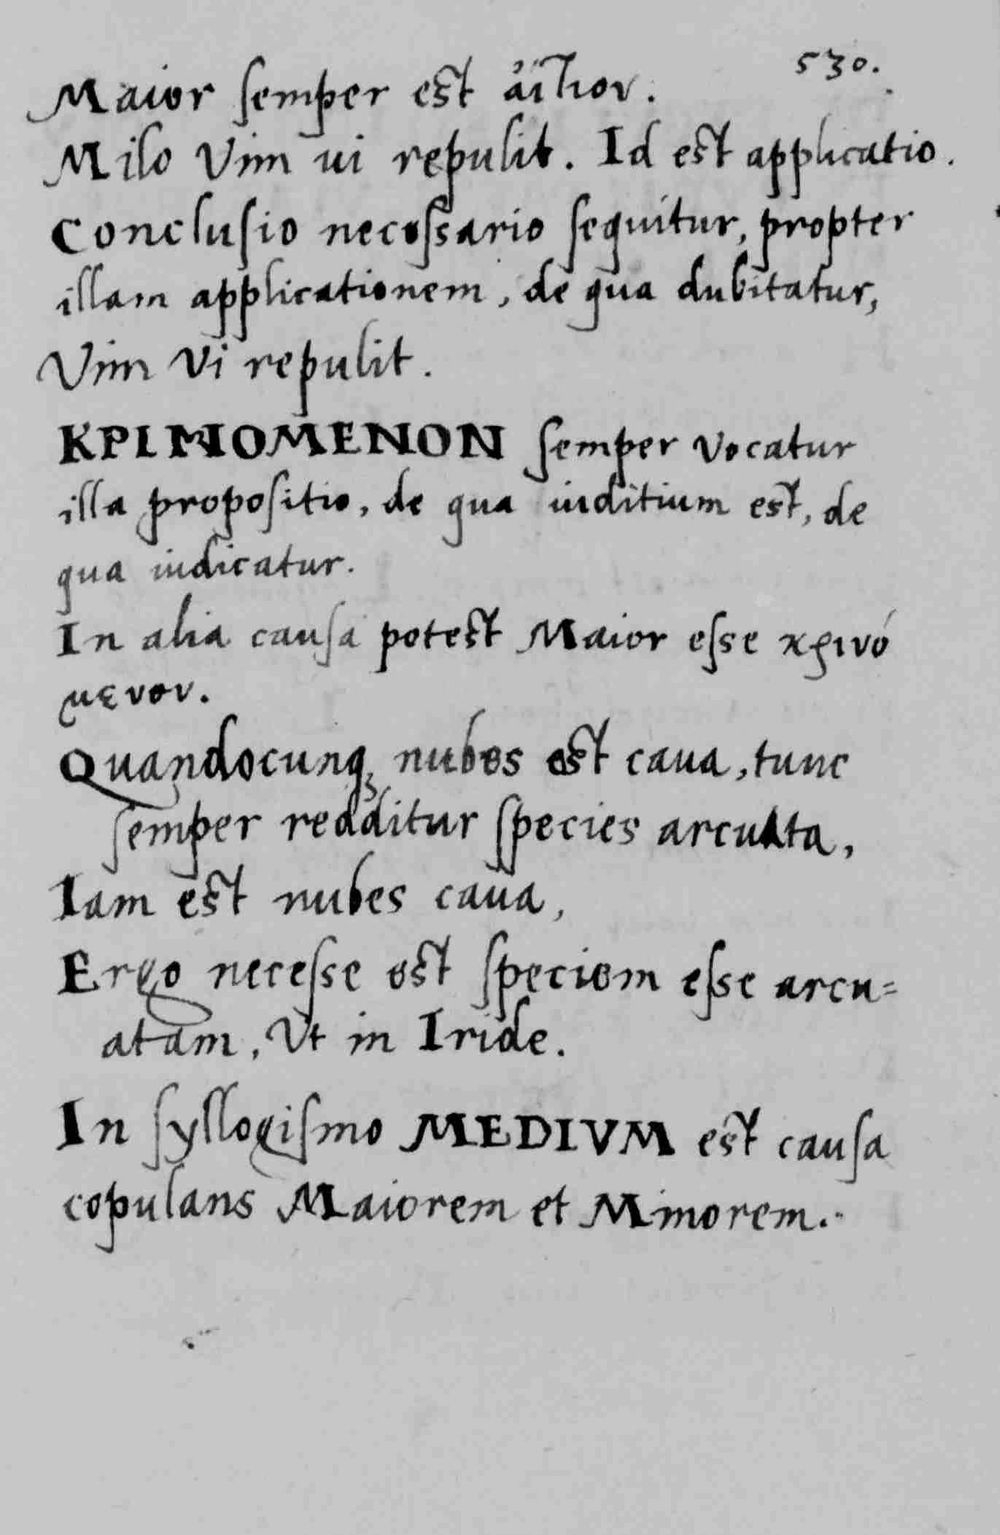 530.
Maior semper est ἄιτιον.
Milo Vim ui repulit. Id est applicatio.
Conclusio necessario sequitur, propter
illam applicationem, de qua dubitatur,
Vim Vi repulit.
ΚΡΙΝΟΜΕΝΟΝ semper vocatur
illa propositio, de qua iuditium est, de
qua iudicatur.
In alia causa potest Maior esse κρινό
μενον.
Quandocunq; nubes est caua, tunc
semper redditur species arcuata,
Iam est nubes caua,
Ergo necesse est speciem esse arcu=
atam, Vt in Iride.
In syllogismo MEDIVM est causa
copulans Maiorem et Minorem.